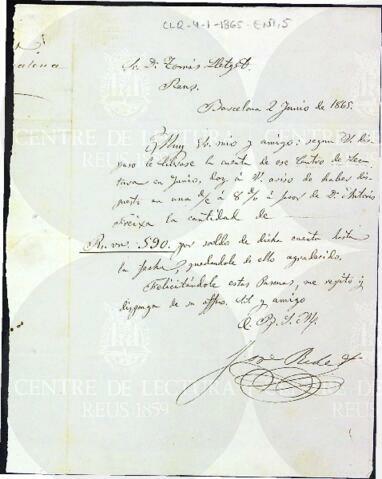 CLR-4-1-1865-ENI,5
Sr. Dn. Tomás
Reus.
Barcelona 2 Junio de 1865.
Muy Sr. mio y amigo: segun V. dis
puso le librase la cuenta de ese Centro de Lec
tura en Junio, doy á V. aviso de haber dis
puesto en una d/c á 8 d/v á favor de D. Antonio
la cantidad de
Rs. vn. 590. por saldo de dicha cuenta hasta
la fecha, quedandole de ello agradecido.
Felicitándole estas Pascuas, me repito y
disponga de su affmo. S.S. y amigo
Q. B. S. M.
CENTRE DE LECTURA
REUS 1859
CENTRE DE LECTURA
REUS 1859